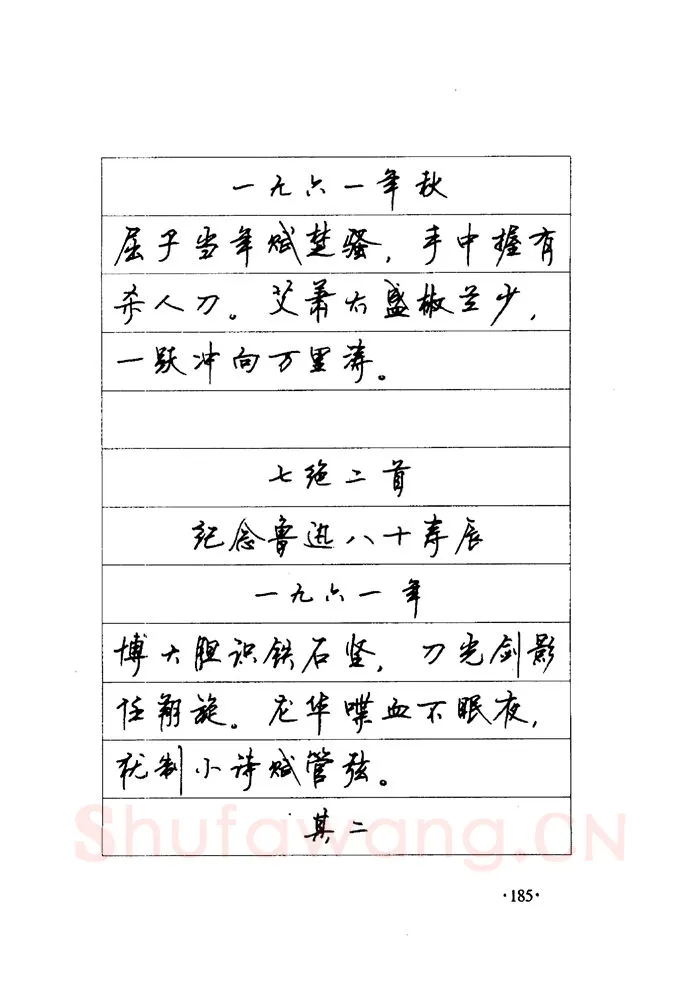 一九六一年秋
屈子当年赋楚骚，手中握有
杀人刀。艾萧太盛椒兰少，
一跃冲向万里涛。
七绝二首
纪念鲁迅八十寿辰
一九六一年
博大胆识铁石坚，刀光剑影
任翔旋。龙华喋血不眠夜，
犹制小诗赋管弦。
其二
Shufawang.CN
·185·